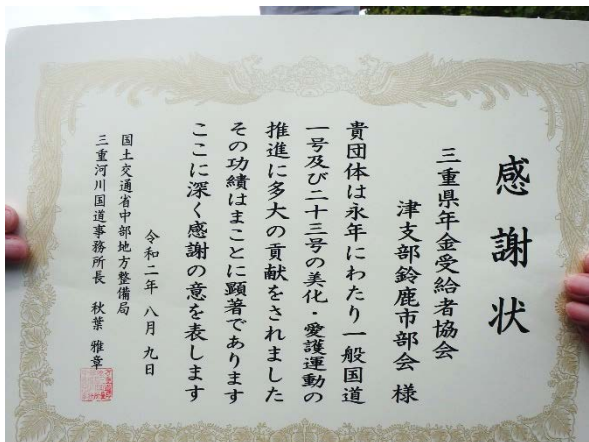 感謝状
三重県年金受給者協会
津支部鈴鹿市部会 様
貴団体は永年にわたり一般国道
一号及び二十三号の美化・愛護運動の
推進に多大の貢献をされました
その功績はまことに顕著であります
ここに深く感謝の意を表します
令和二年 八月 九日
国土交通省中部地方整備局
三重河川国道事務所長 秋葉 雅章